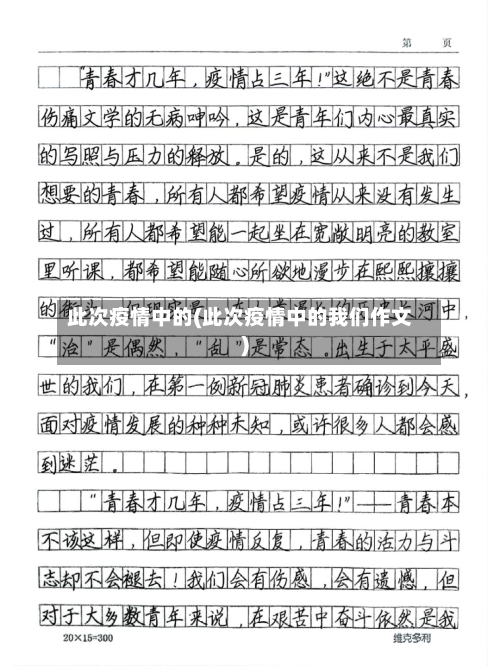 第 页
“青春才几年，疫情占三年！”这绝不是青春
伤痛文学的无病呻吟，这是青年们内心最真实
的写照与压力的释放。是的，这从来不是我们
想要的青春，所有人都希望疫情从来没有发生
过，所有人都希望能一起坐在宽敞明亮的教室
里听课，都希望能随心所欲地漫步在熙熙攘攘
的街头。但现实是，在
河中，
此次疫情中的(此次疫情中的我们作文
)
“治”是偶然，“乱”是常态。出生于太平盛
世的我们，在第一例新冠肺炎患者确诊到今天，
面对疫情发展的种种未知，或许很多人都会感
到迷茫。
“青春才几年，疫情占三年！”——青春本
不该这样，但即使疫情反复，青春的活力与斗
志却不会褪去！我们会有伤感，会有遗憾，但
对于大多数青年来说，在艰苦中奋斗依然是我
20×15=300 维克多利